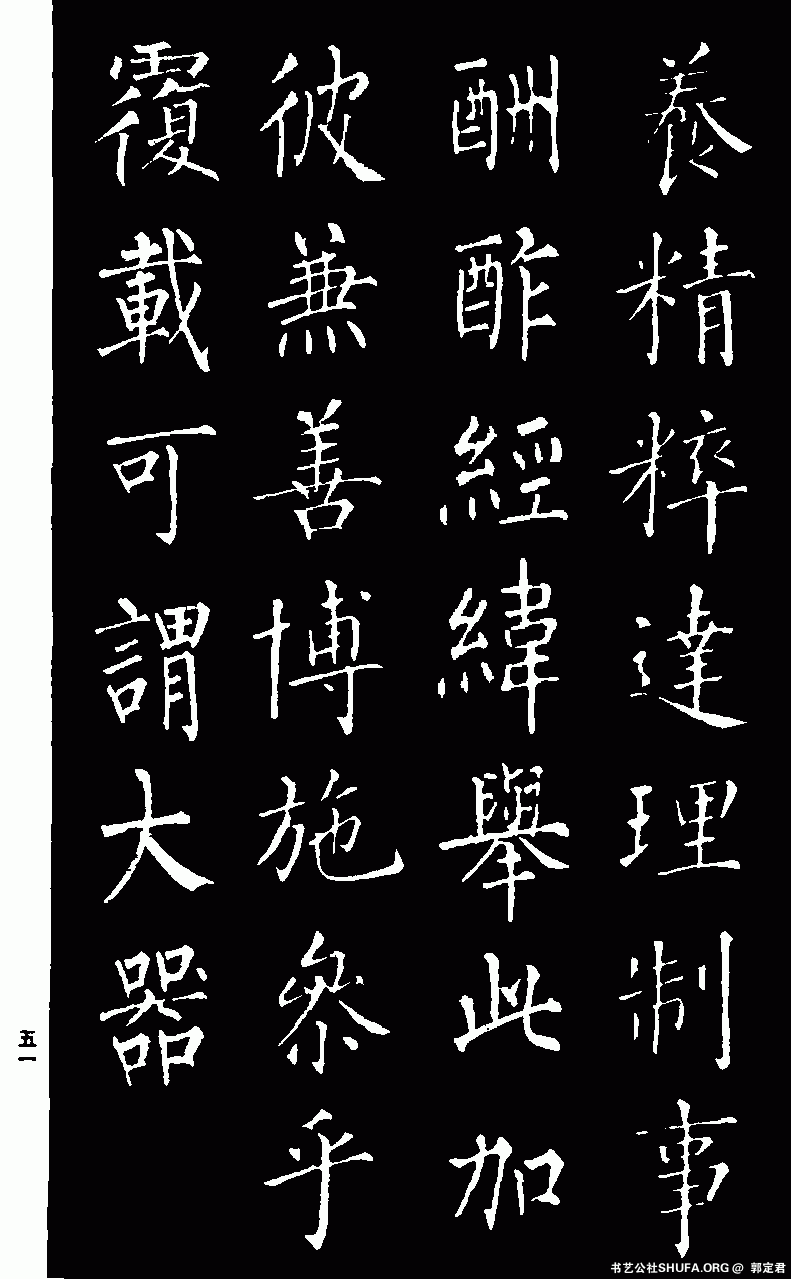 養精粹達理制事
酬酢經緯舉此加
彼兼善博施參乎
覆載可謂大器
五一
书艺公社SHUFA.ORG @ 郭定君